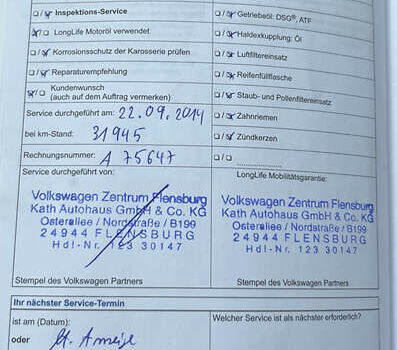 □/□ Inspektions-Service
□/□ LongLife Motoröl verwendet
□/□ Korrosionsschutz der Karosserie prüfen
□/□ Reparaturempfehlung
□/□ Kundenwunsch
(auch auf dem Auftrag vermerken)
Service durchgeführt am: 22.09.2014
bei km-Stand: 31945
Rechnungsnummer: A 75647
Service durchgeführt von:
Volkswagen Zentrum Flensburg
Kath Autohaus GmbH & Co. KG
Osterallee / Nordstraße / B199
24944 FLENSBURG
Hdl-Nr. 123 30147
Stempel des Volkswagen Partners
□/□ Getriebeöl: DSG®, ATF
□/□ Haldexkupplung: Öl
□/□ Luftfiltereinsatz
□/□ Reifenfüllflasche
□/□ Staub- und Pollenfiltereinsatz
□/□ Zahnriemen
□/□ Zündkerzen
□/□
LongLife Mobilitätsgarantie:
Volkswagen Zentrum Flensburg
Kath Autohaus GmbH & Co. KG
Osterallee / Nordstraße / B199
24944 FLENSBURG
Hdl-Nr. 123 30147
Stempel des Volkswagen Partners
Ihr nächster Service-Termin
ist am (Datum):
oder lt. Anzeige
Welcher Service ist als nächster erforderlich?